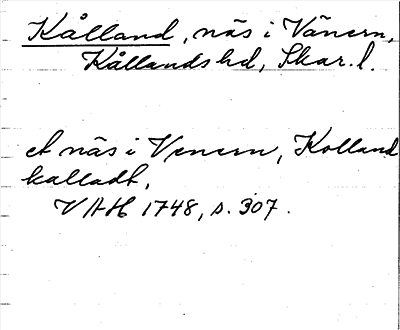 Kålland, näs i Vänern,
Kållands hd, Skar. l.
et näs i Venern, Kolland
kalladt,
VAH 1748, s. 307.